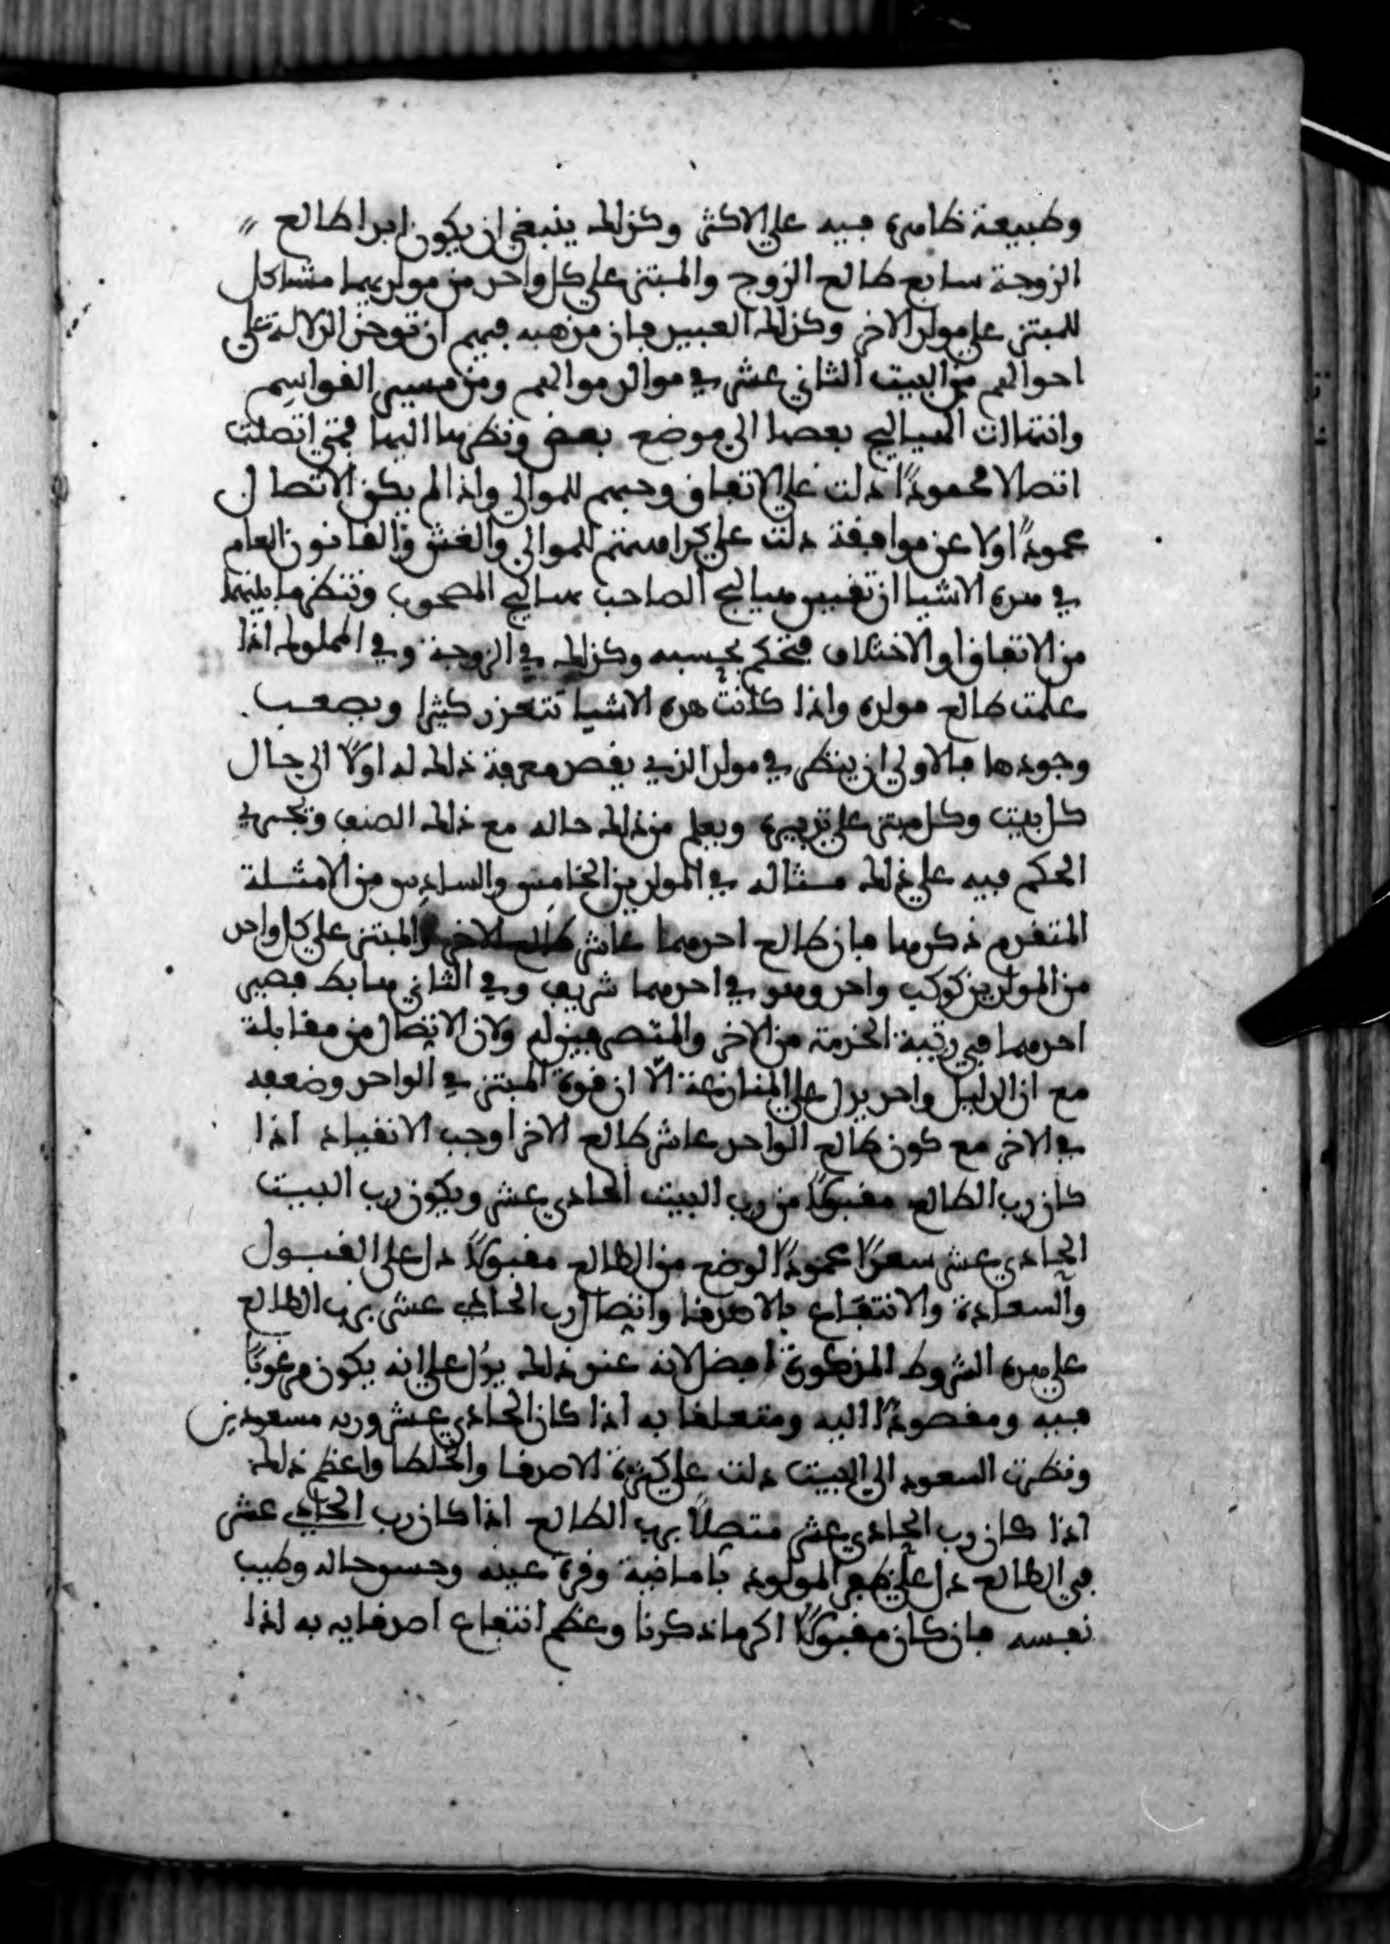 وطبيعة ظاهرة فيه على الاكثر وكذلك ينبغي ان يكون ابدا طالع
الزوجة سابع طالع الزوج والمبتز على كل واحد من مولديهما مشاكل
للمبتز على مولد الاخر وكذلك العبيد فان مذهبه فيهم ان توخذ الدلالة على
احوالهم من البيت الثاني عشر في موالد مواليهم ومن تسيير القواسم
وانتهاات الهياليج بعضها الى موضع بعض ونظرها اليها فمتى اتصلت
اتصالا محمودًا دلت على الاتفاق وحبهم للموالي واذا لم يكن الاتصال
محمودًا اولا عن موافقة دلت على كراهيتهم للموالي والغش والقانون العام
في هذه الاشيا ان تقيس هياليج الصاحب بهياليج المصحوب وتنظر ما بينهما
من الاتفاق او الاختلاف فتحكم بحسبه وكذلك في الزوجة وفي المملوك اذا
علمت طالع مولده واذا كانت هذه الاشيا تتعذر كثيرا ويصعب
وجودها فالاولى ان ينظر في مولد الذي يقصد معرفة ذلك له اولًا الى حال
كل بيت وكل مبتز على تدبيره ويعلم من ذلك حاله مع ذلك الصنف وتجري
الحكم فيه على ذلك مثاله في المولدين الخامس والسادس من الامثلة
المتقدم ذكرها فان طالع احدهما عاشر طالع الاخر والمبتز على كل واحد
من المولدين كوكب واحد وهو في احدهما شريف وفي الثاني هابط فصير
احدهما في رتبة الخدمة من الاخر والمتصرفين له ولان الاتصال من مقابلة
مع ان الدليل واحد يدل على المنازعة الّا ان قوة المبتز في الواحد وضعفه
في الاخر مع كون طالع الواحد عاشر طالع الاخر اوجب الانقياد اذا
كان رب الطالع مقبولًا من رب البيت الحادي عشر ويكون رب البيت
الحادي عشر سعدًا محمودًا الوضع من الطالع مقبولًا دل على القبول
والسعادة والانتفاع بالاصدقا واتصال رب الحادي عشر برب الطالع
على هذه الشروط المذكورة افضل لانه عند ذلك يدل على انه يكون مرغوبًا
فيه ومقصودًا اليه ومتعلقا به اذا كان الحادي عشر وربه مسعودين
ونظرت السعود الى البيت دلت على كثرة الاصدقا والخلطا واعظم ذلك
اذا كان رب الحادي عشر متصلًا برب الطالع اذا كان رب الحادي عشر
في الطالع دل على ظفر المولود بامانيه وقرة عينه وحسن حاله وطيب
نفسه فان كان مقبولًا اكد ما ذكرنا وعظم انتفاع اصدقايه به اذا